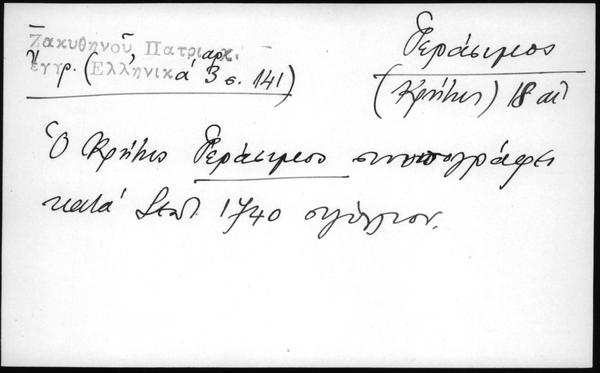 Ζακυθηνοῦ Πατριαρχ.
ἔγγρ. (Ἑλληνικά 3 σ. 141)
Γεράσιμος
(Κρήτης) 18 αἰ
Ὁ Κρήτης Γεράσιμος συνυπογράφει
κατὰ 1740 σιγίλλιον.